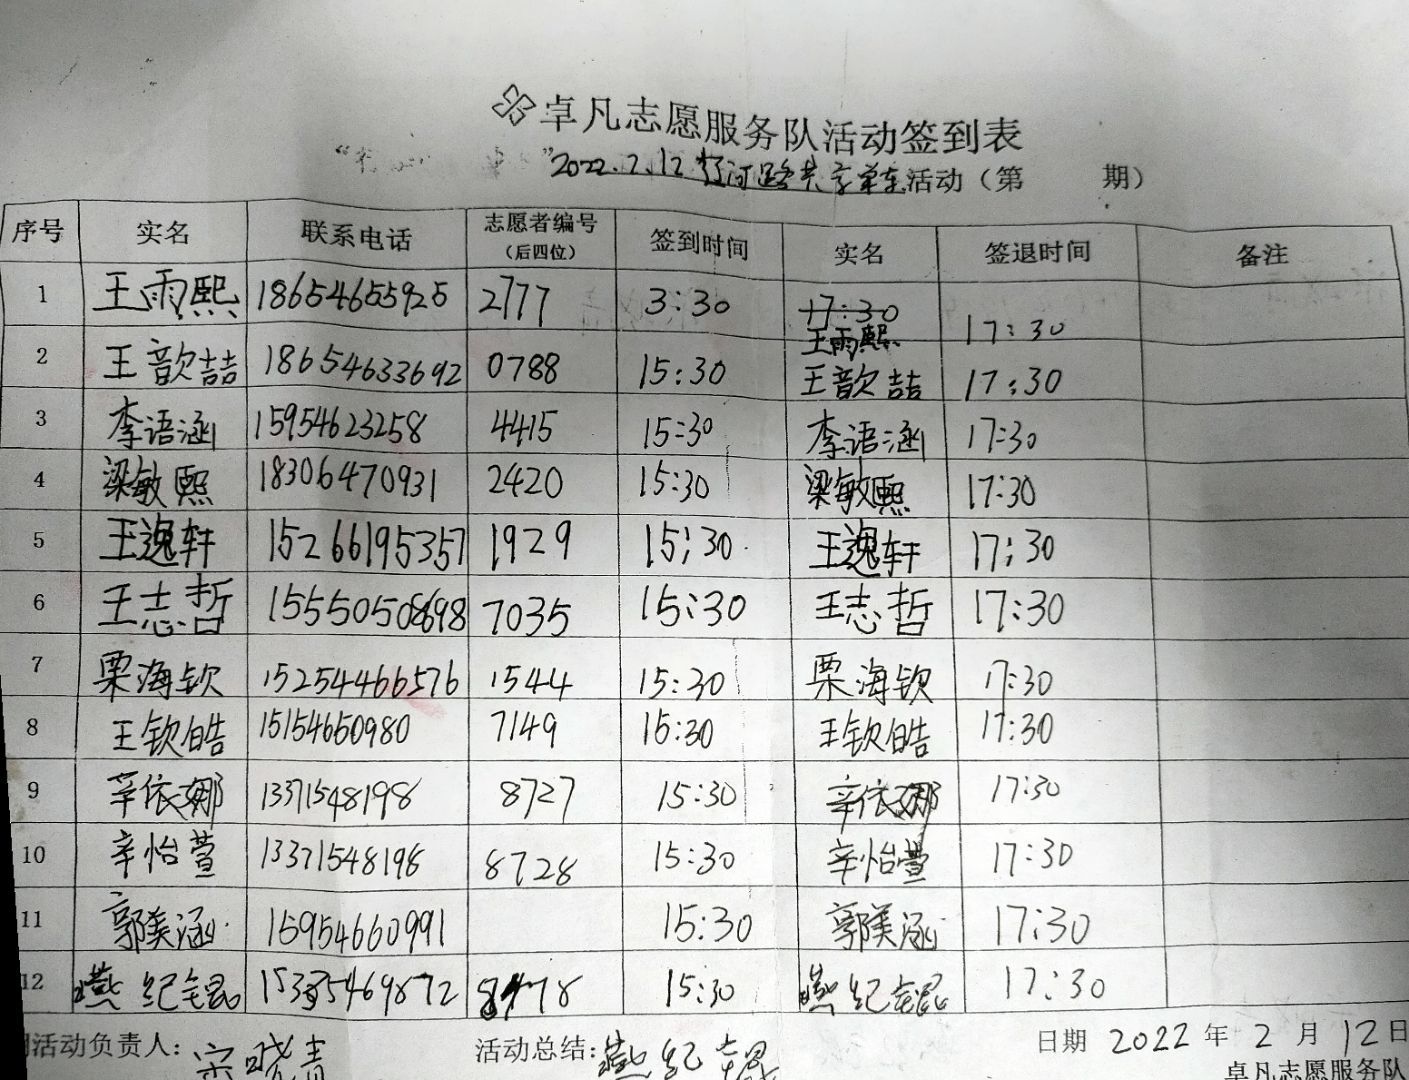 卓凡志愿服务队活动签到表
2022.2.12 辽河路共享单车活动（第 期）
序号 实名 联系电话 志愿者编号（后四位） 签到时间 实名 签退时间 备注
1 王雨熙 18654655925 2777 3:30 17:30 王雨熙 17:30
2 王歆喆 18654633692 0788 15:30 王歆喆 17:30
3 李语涵 15954623258 4415 15:30 李语涵 17:30
4 梁敏熙 18306470931 2420 15:30 梁敏熙 17:30
5 王逸轩 15266195357 1929 15:30 王逸轩 17:30
6 王志哲 15550508698 7035 15:30 王志哲 17:30
7 栗海钦 15254466576 1544 15:30 栗海钦 17:30
8 王钦皓 15154650980 7149 15:30 王钦皓 17:30
9 辛依娜 13371548198 8727 15:30 辛依娜 17:30
10 辛怡萱 13371548198 8728 15:30 辛怡萱 17:30
11 郭美涵 15954660991 15:30 郭美涵 17:30
12 燕纪锟 15:30 燕纪锟 17:30
活动负责人：宋晓青 活动总结：燕纪锟 日期 2022 年 2 月 12 日
卓凡志愿服务队